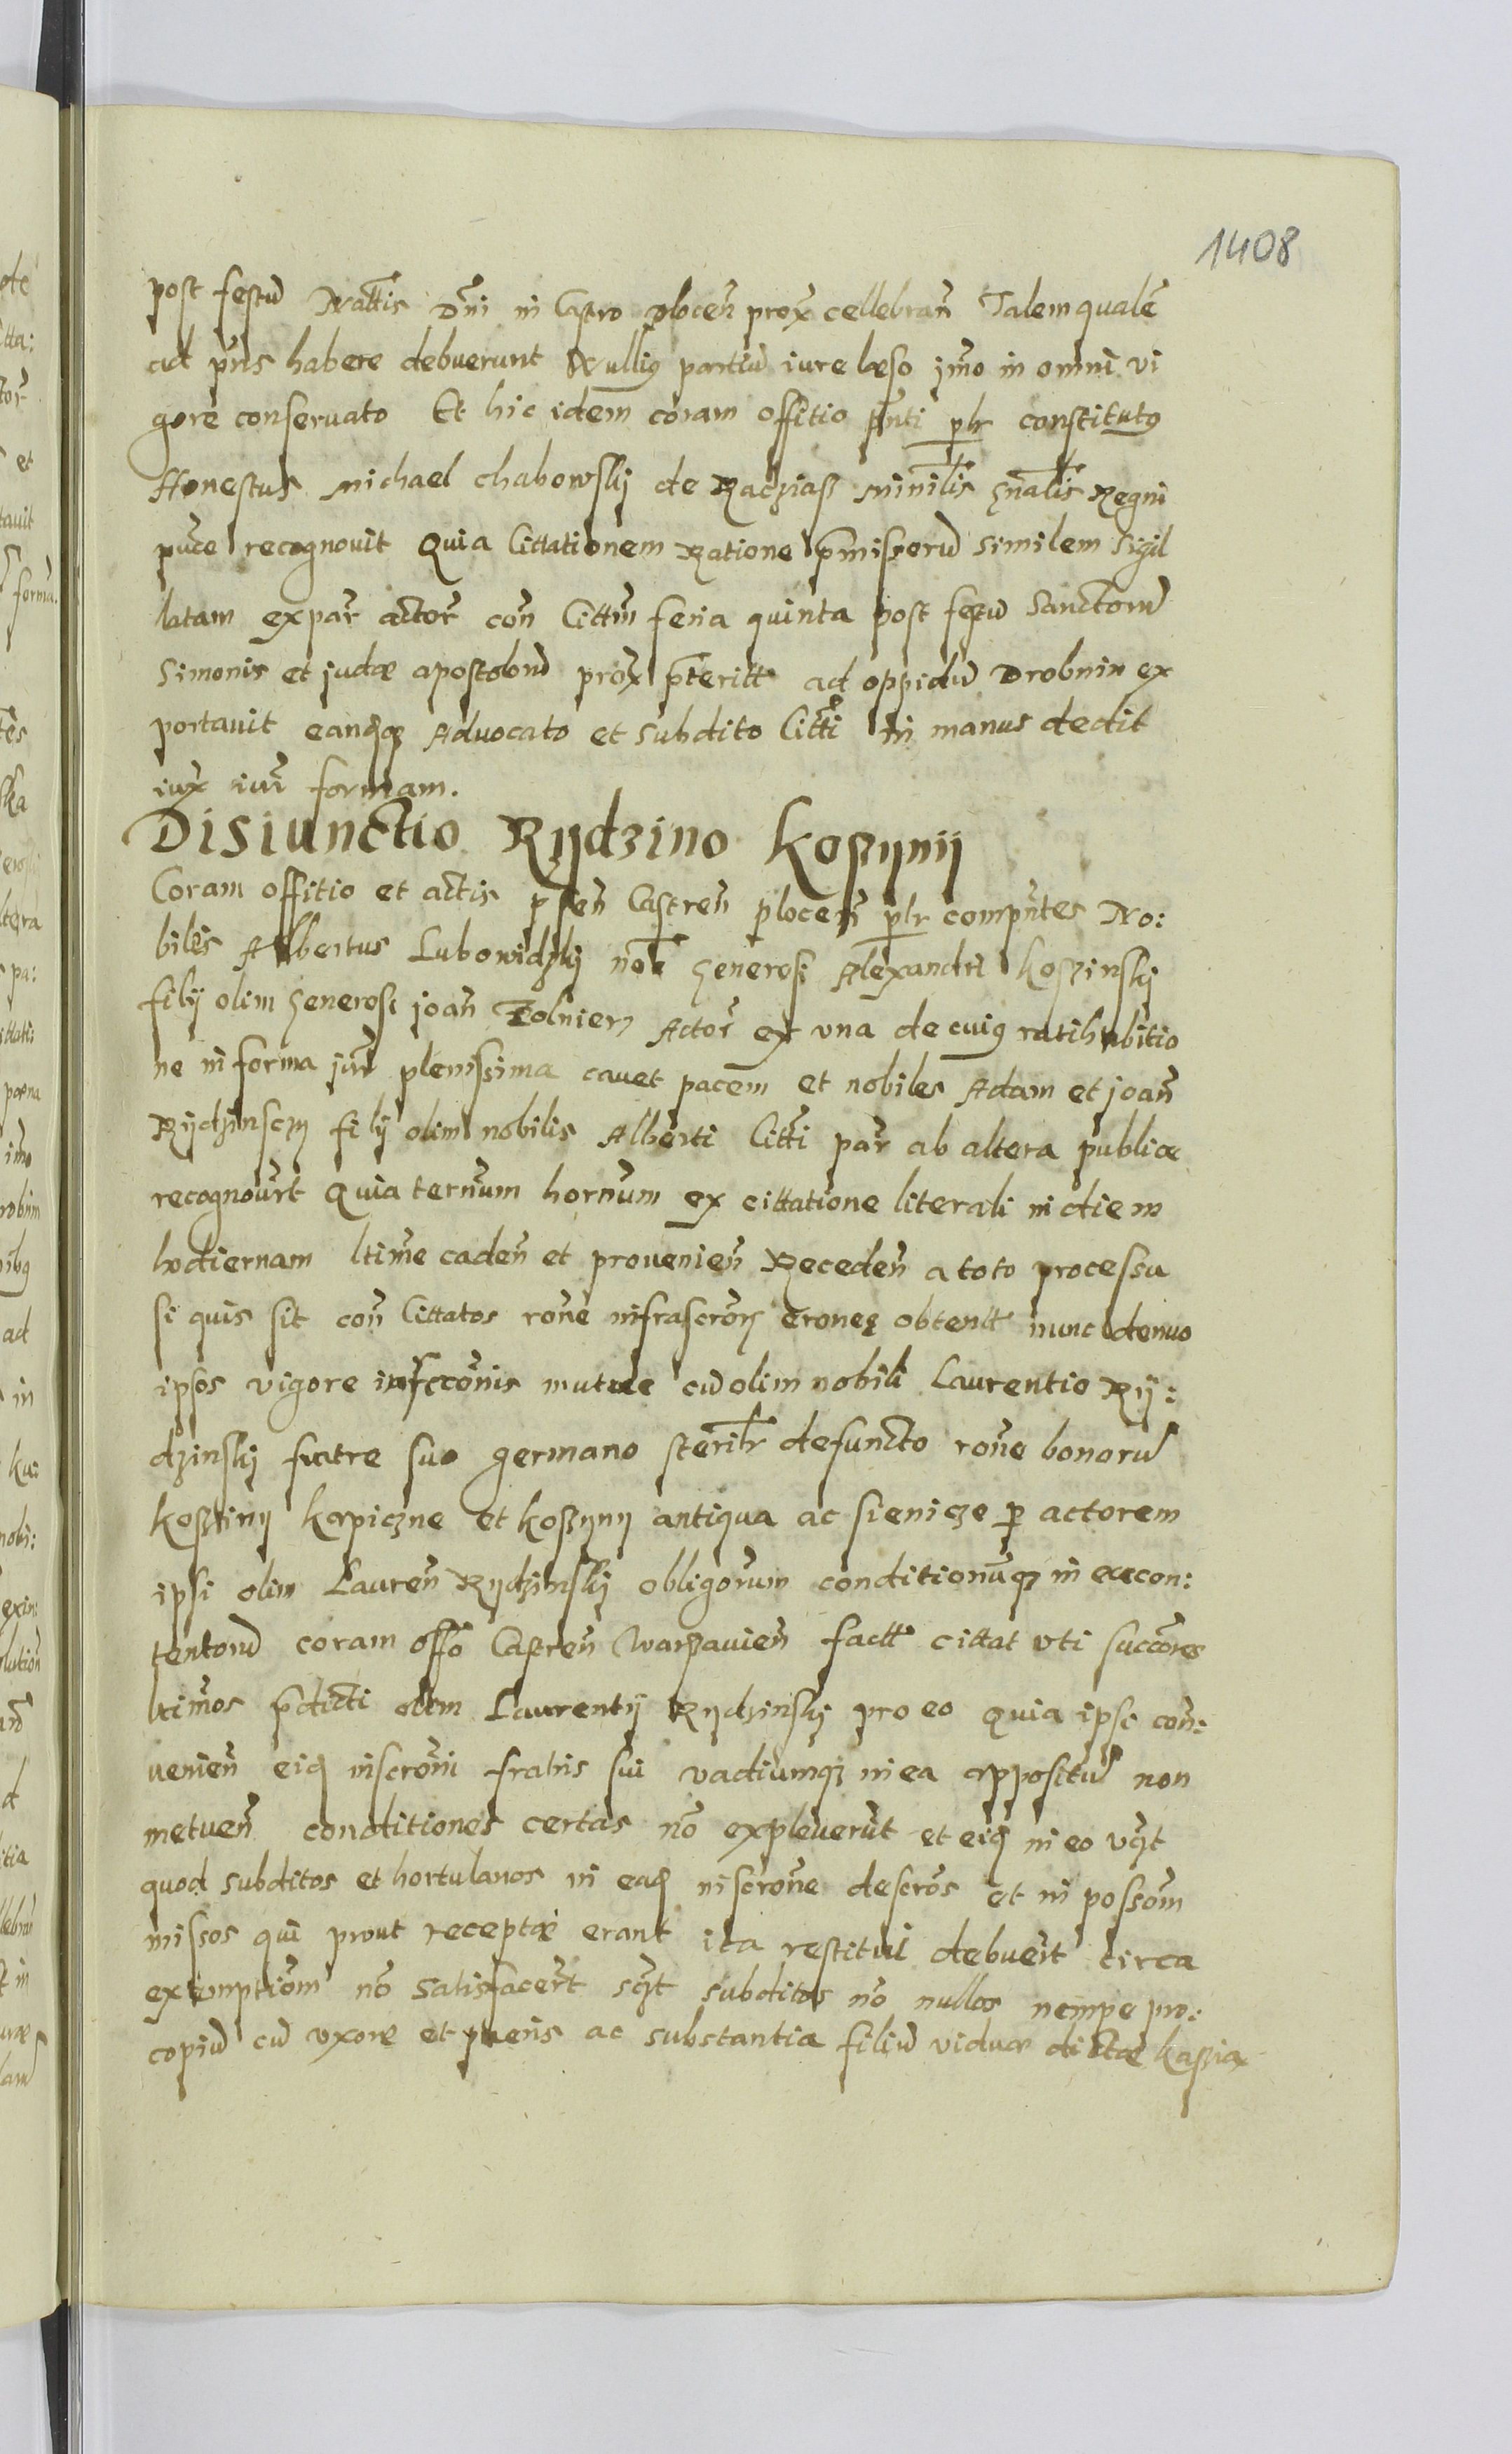 1408
post festũ Natlis Dñi in Castro plocen̄ prox cellebran̄ Talem qualẽ
ad p̃ns habere debuerunt Nulliq partiũ iure læso imo in omni vi
gore conseruato Et hic idem coram offitio p̃nti plr constitutq
Honestus Michael chabowskÿ de Racziasz Minilis gñalis Regni
puce recognovit Quia Cittationem Ratione p̃missorũ similem sigil
latam ex par actor con̄ Cittm̄ feria quinta post festũ Sanctorũ
Simonis et judæ apostolorũ prox p̃teritt ad oppidũ Drobnin ex
portauit eanqꝫ Advocato et subdito Citti in manus dedit
iux iur̃ formam.
Disiunctio Rÿdzino Koszÿnÿ
Coram offitio et actis p̃sen̄ Castren̄ plocen̄ plr comp̃ntes No:
biles Albertus Lubowidzkÿ no͠e Generosi Alexandri Koszinskÿ
filÿ olim Generosi joan̄ Zolnierz Actor ex vna de cuiq ratihabitio
ne in forma jur̃ plenissima cauet pacem et nobiles Adam et joan̄
Rÿdzinsczÿ filÿ olim nobilis Alberti Citti par ab altera publice
recognourt Quia ternum hornum ex cittatione literali in diem
hodiernam ltime caden̄ et prouenien̄ Receden̄ a toto processu
si quis sit con̄ Cittatos ro͠ne infrascror̄ eroneę obtentt nunc denuo
ipsos vigore inscrõnis mutuæ cũ olim nobili Laurentio Rÿ:
dzinskÿ fratre suo germano sterilr defuncto ro͠ne bonorũ
Koszinÿ kapiczne et Koszÿnÿ antiqua ac sienicze ꝑ actorem
ipsi olim Lauren̄ Rÿdzinskÿ obligorum conditionũqꝫ in ea con:
tentorũ coram offo Castren̄ Warszauien̄ factt cittat vti succores
ltimos p̃dicti olim Laurentÿ Rÿdzinskÿ pro eo Quia ipsi con:
uenien̄ eiq inscrõni fratris sui vadiumqꝫ in ea appositũ non
metuen̄ conditiones certas no͠ expleuerũt et eiq in eo vcꝫt
quod subditos et hortulanos in eaq inscro͠ne descros et in possom
missos qui prout receptæ erant ita restitui debuerit circa
exemptiom no͠ satisfacert scꝫt subditos no͠ nullos nempe pro:
copiũ cũ vxore et pueris ac substantia filiũ viduæ dictæ kaszia